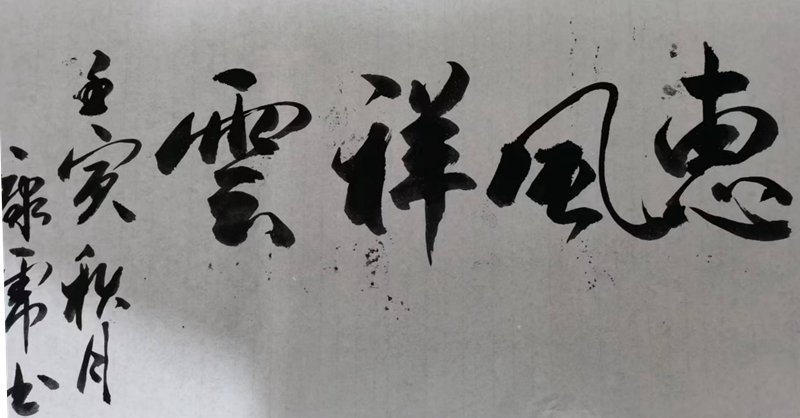 惠風祥雲
壬寅秋月
書